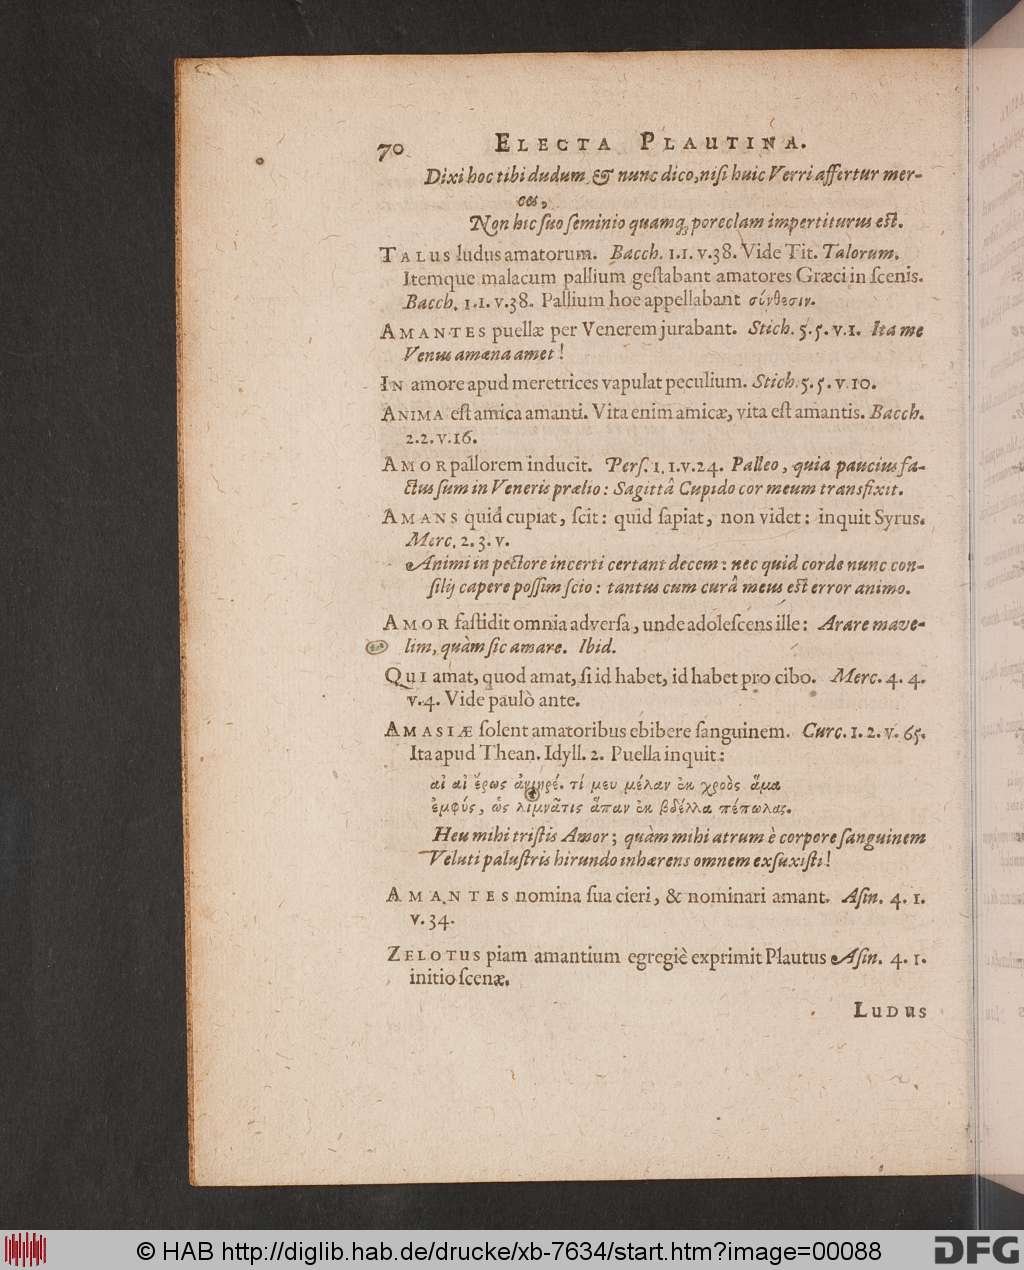 70 ELECTA PLAUTINA.
Dixi hoc tibi dudum, & nunc dico, nisi huic Verri affertur mer-
ces,
Non hic suo seminio quamq; porcelam impertiturus est.
TALUS ludus amatorum. Bacch. 1.1. v.38. Vide Tit. Talorum.
Itemque malacum pallium gestabant amatores Græci in scenis.
Bacch. 1.1. v.38. Pallium hoc appellabant σύνθεσιν.
AMANTES puellæ per Venerem jurabant. Stich. 5.5. v.1. Ita me
Venus amœna amet!
IN amore apud meretrices vapulat peculium. Stich. 5.5. v.10.
ANIMA est amica amanti. Vita enim amicæ, vita est amantis. Bacch.
2.2. v.16.
AMOR pallorem inducit. Pers. 1.1. v.24. Palleo, quia paucius fa-
ctus sum in Veneris prælio: Sagittâ Cupido cor meum transfixit.
AMANS quid cupiat, scit: quid sapiat, non videt: inquit Syrus.
Merc. 2. 3. v.
Animi in pectore incerti certant decem: nec quid corde nunc con-
silij capere possim scio: tantus cum curâ meus est error animo.
AMOR fastidit omnia adversa, unde adolescens ille: Arare mave-
lim, quàm sic amare. Ibid.
QUI amat, quod amat, si id habet, id habet pro cibo. Merc. 4. 4.
v.4. Vide paulò ante.
AMASIÆ solent amatoribus ebibere sanguinem. Curc. 1. 2. v. 65.
Ita apud Thean. Idyll. 2. Puella inquit:
αἰ αἰ ἔρως ἀνιηρέ. τί μευ μέλαν ἐκ χροὸς ἅμα
ἐμφύς, ὡς λιμνᾶτις ἅπαν ἐκ βδέλλα πέπωκας.
Heu mihi tristis Amor; quàm mihi atrum è corpore sanguinem
Veluti palustris hirundo inhærens omnem exsuxisti!
AMANTES nomina sua cieri, & nominari amant. Asin. 4. 1.
v. 34.
ZELOTUS piam amantium egregiè exprimit Plautus Asin. 4. 1.
initio scenæ.
LUDUS
© HAB http://diglib.hab.de/drucke/xb-7634/start.htm?image=00088
DFG